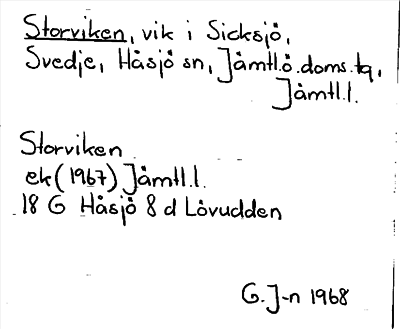 Storviken, vik i Sicksjö,
Svedje, Håsjö sn, Jämtl.ö.doms.tq,
Jämtl.l.
Storviken
ek (1967) Jämtl.l.
18 G Håsjö 8 d Lövudden
G. J-n 1968